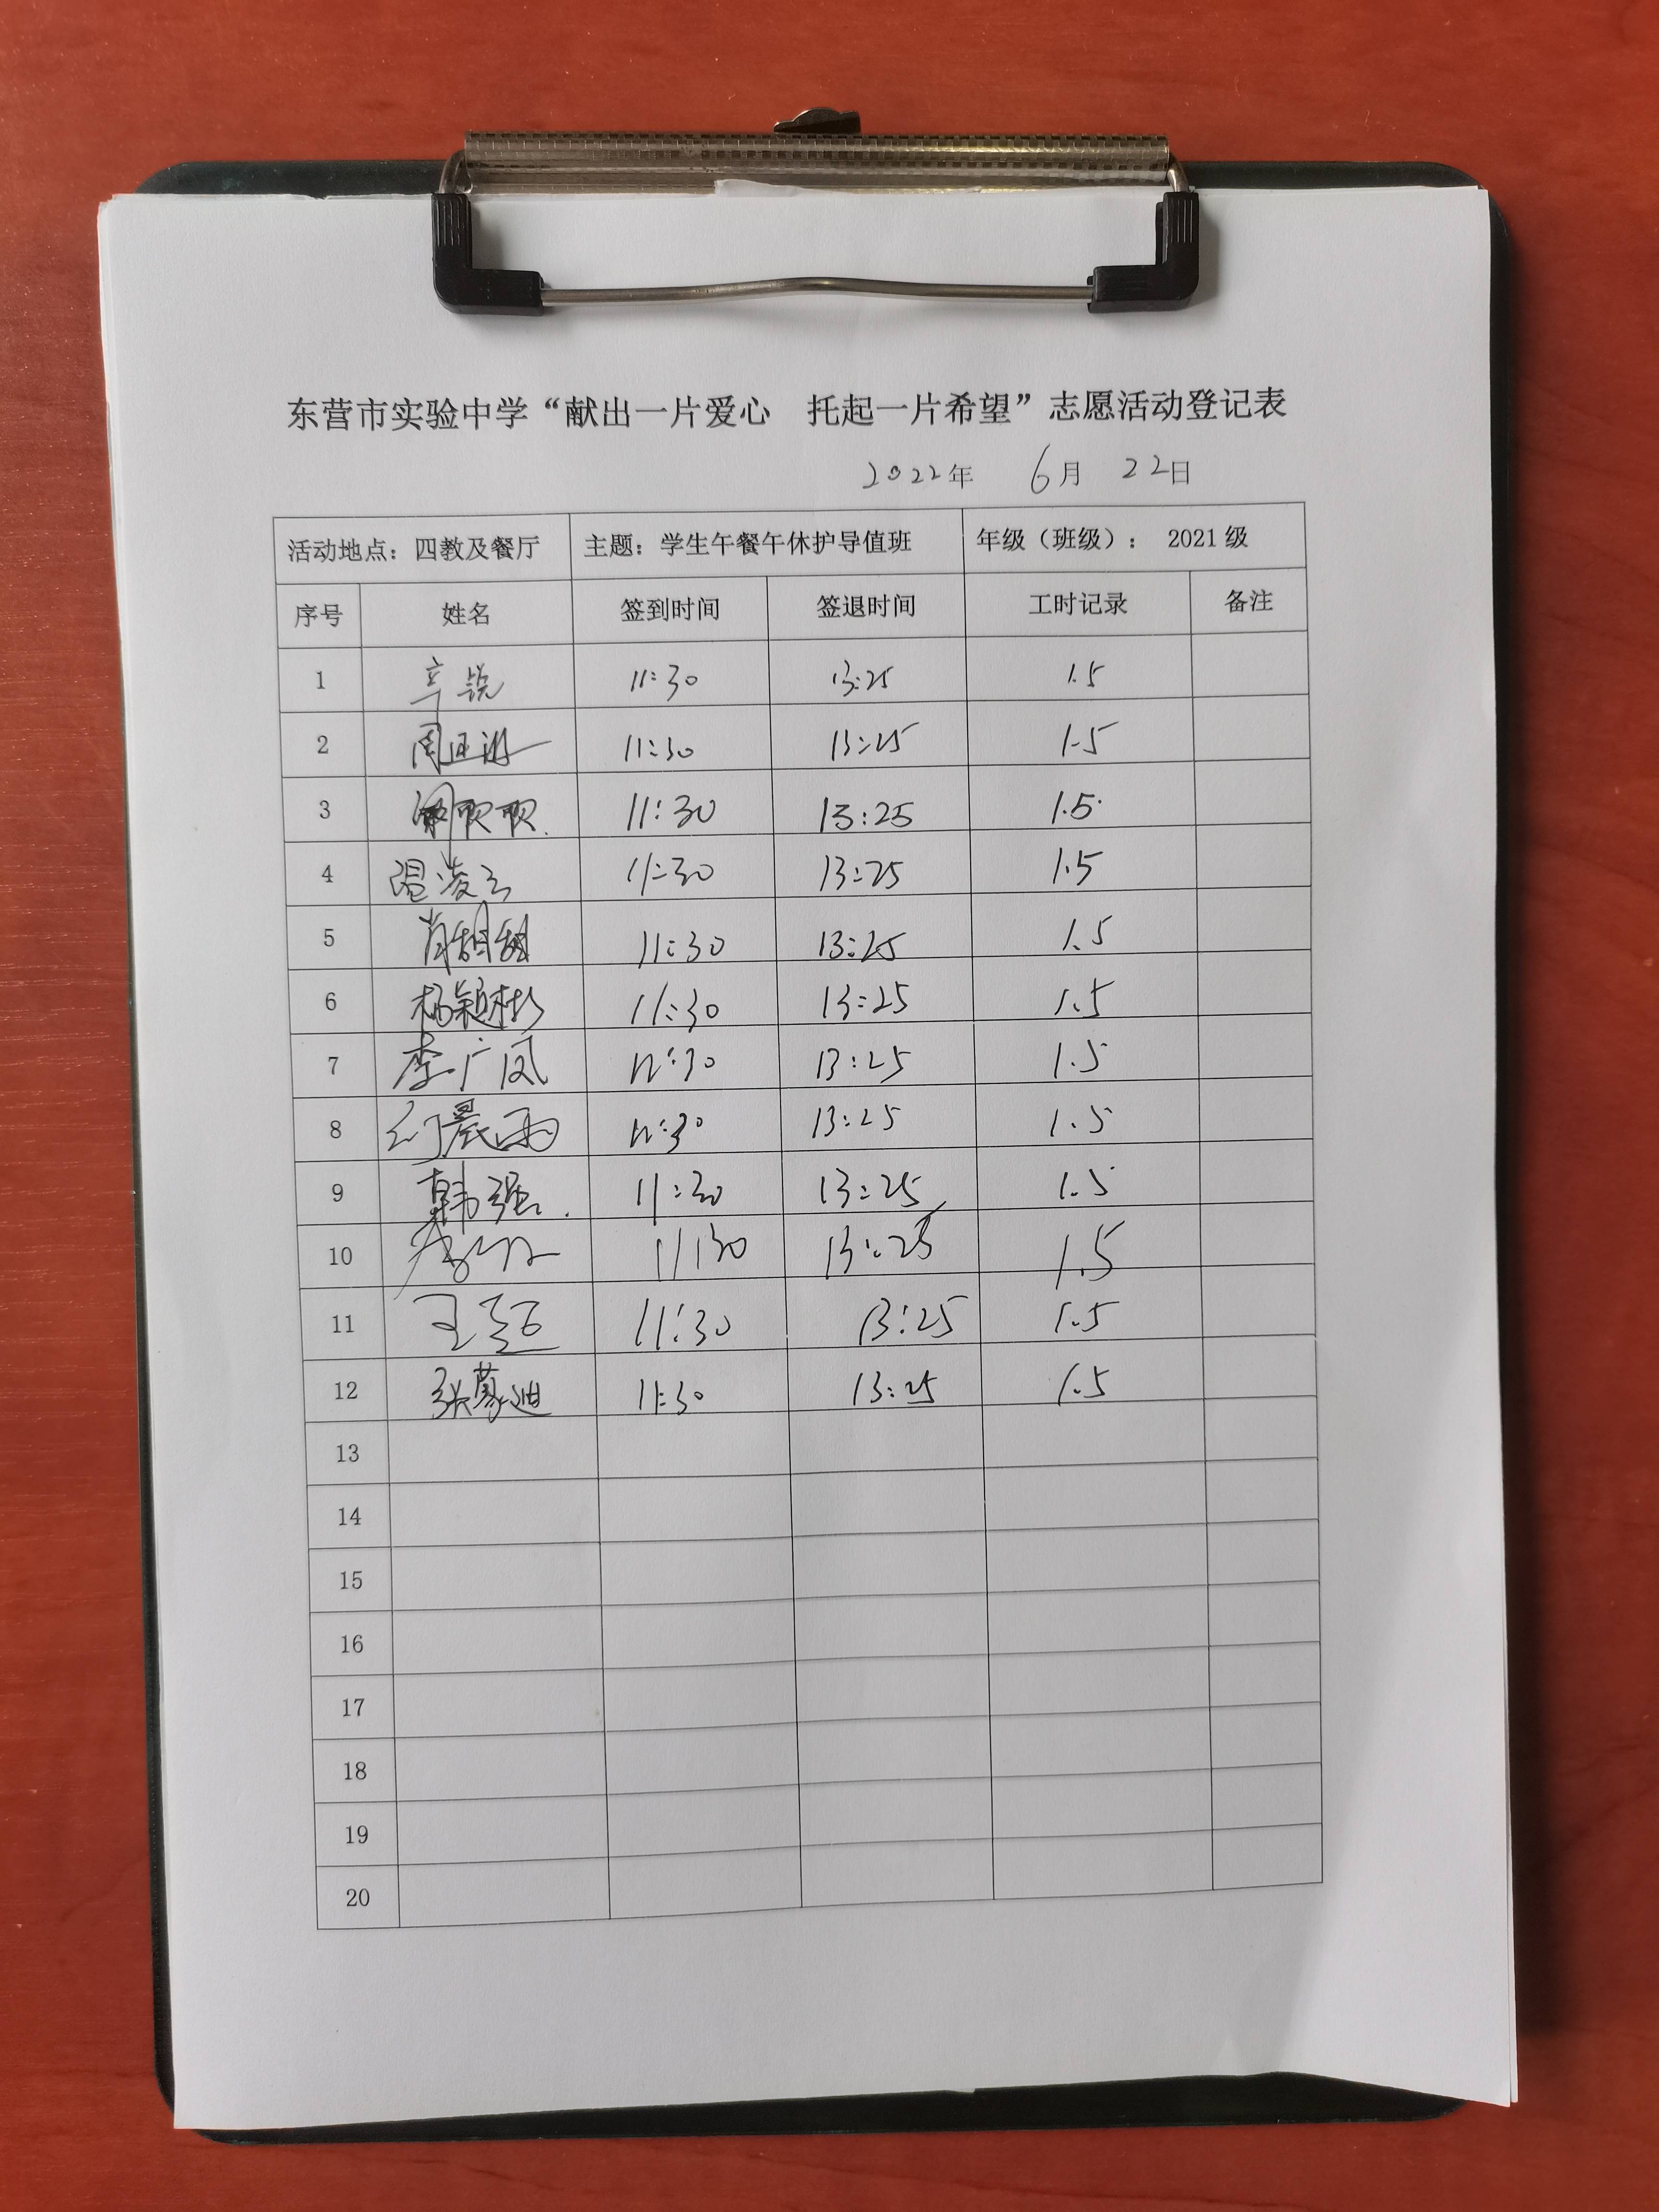 东营市实验中学“献出一片爱心 托起一片希望”志愿活动登记表
2022年 6月 22日
活动地点：四教及餐厅 主题：学生午餐午休护导值班 年级（班级）： 2021级
序号 姓名 签到时间 签退时间 工时记录 备注
1 辛锐 11:30 13:25 1.5
2 11:30 13:25 1.5
3 11:30 13:25 1.5
4 温凌云 11:30 13:25 1.5
5 肖甜甜 11:30 13:25 1.5
6 杨颖彬 11:30 13:25 1.5
7 李广凤 11:30 13:25 1.5
8 晨雨 11:30 13:25 1.5
9 韩强 11:30 13:25 1.5
10 11:30 13:25 1.5
11 王 11:30 13:25 1.5
12 张蔓迪 11:30 13:25 1.5
13
14
15
16
17
18
19
20